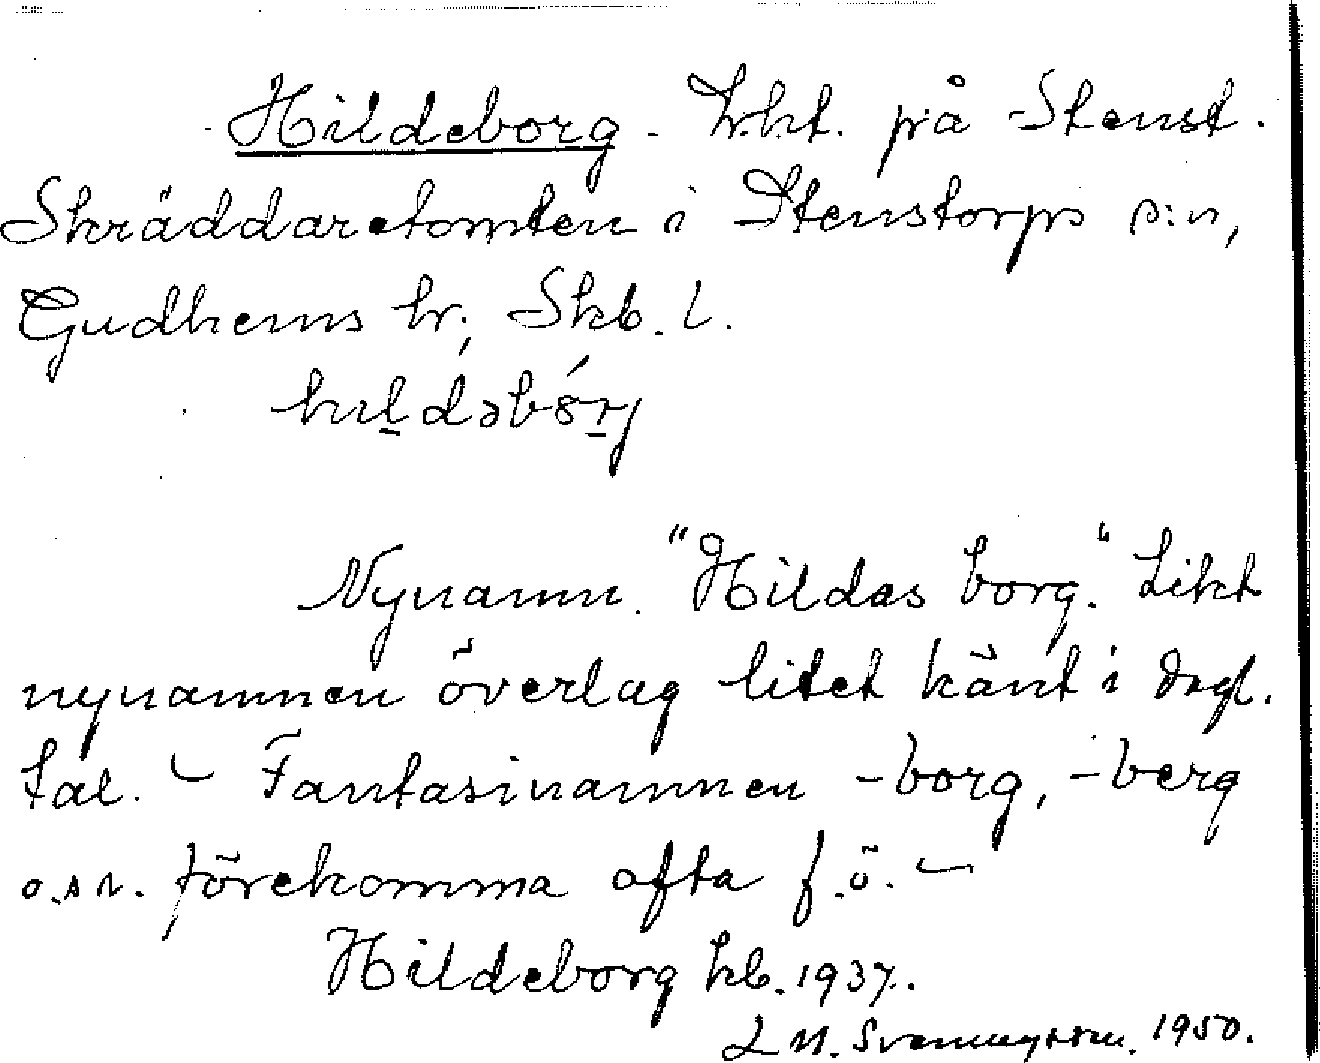 Hildeborg - lrkt. på Stenst.
Skräddaretomten i Stenstorps s:n,
Gudhems hr, Skb. l.
Nynamn. "Hildas borg." Likt
nynamnen överlag litet känt i dagl.
tal. - Fantasinamnen -borg, -berg
o.s.v. förekomma ofta f.ö. -
Hildeborg kb. 1937.
1950.